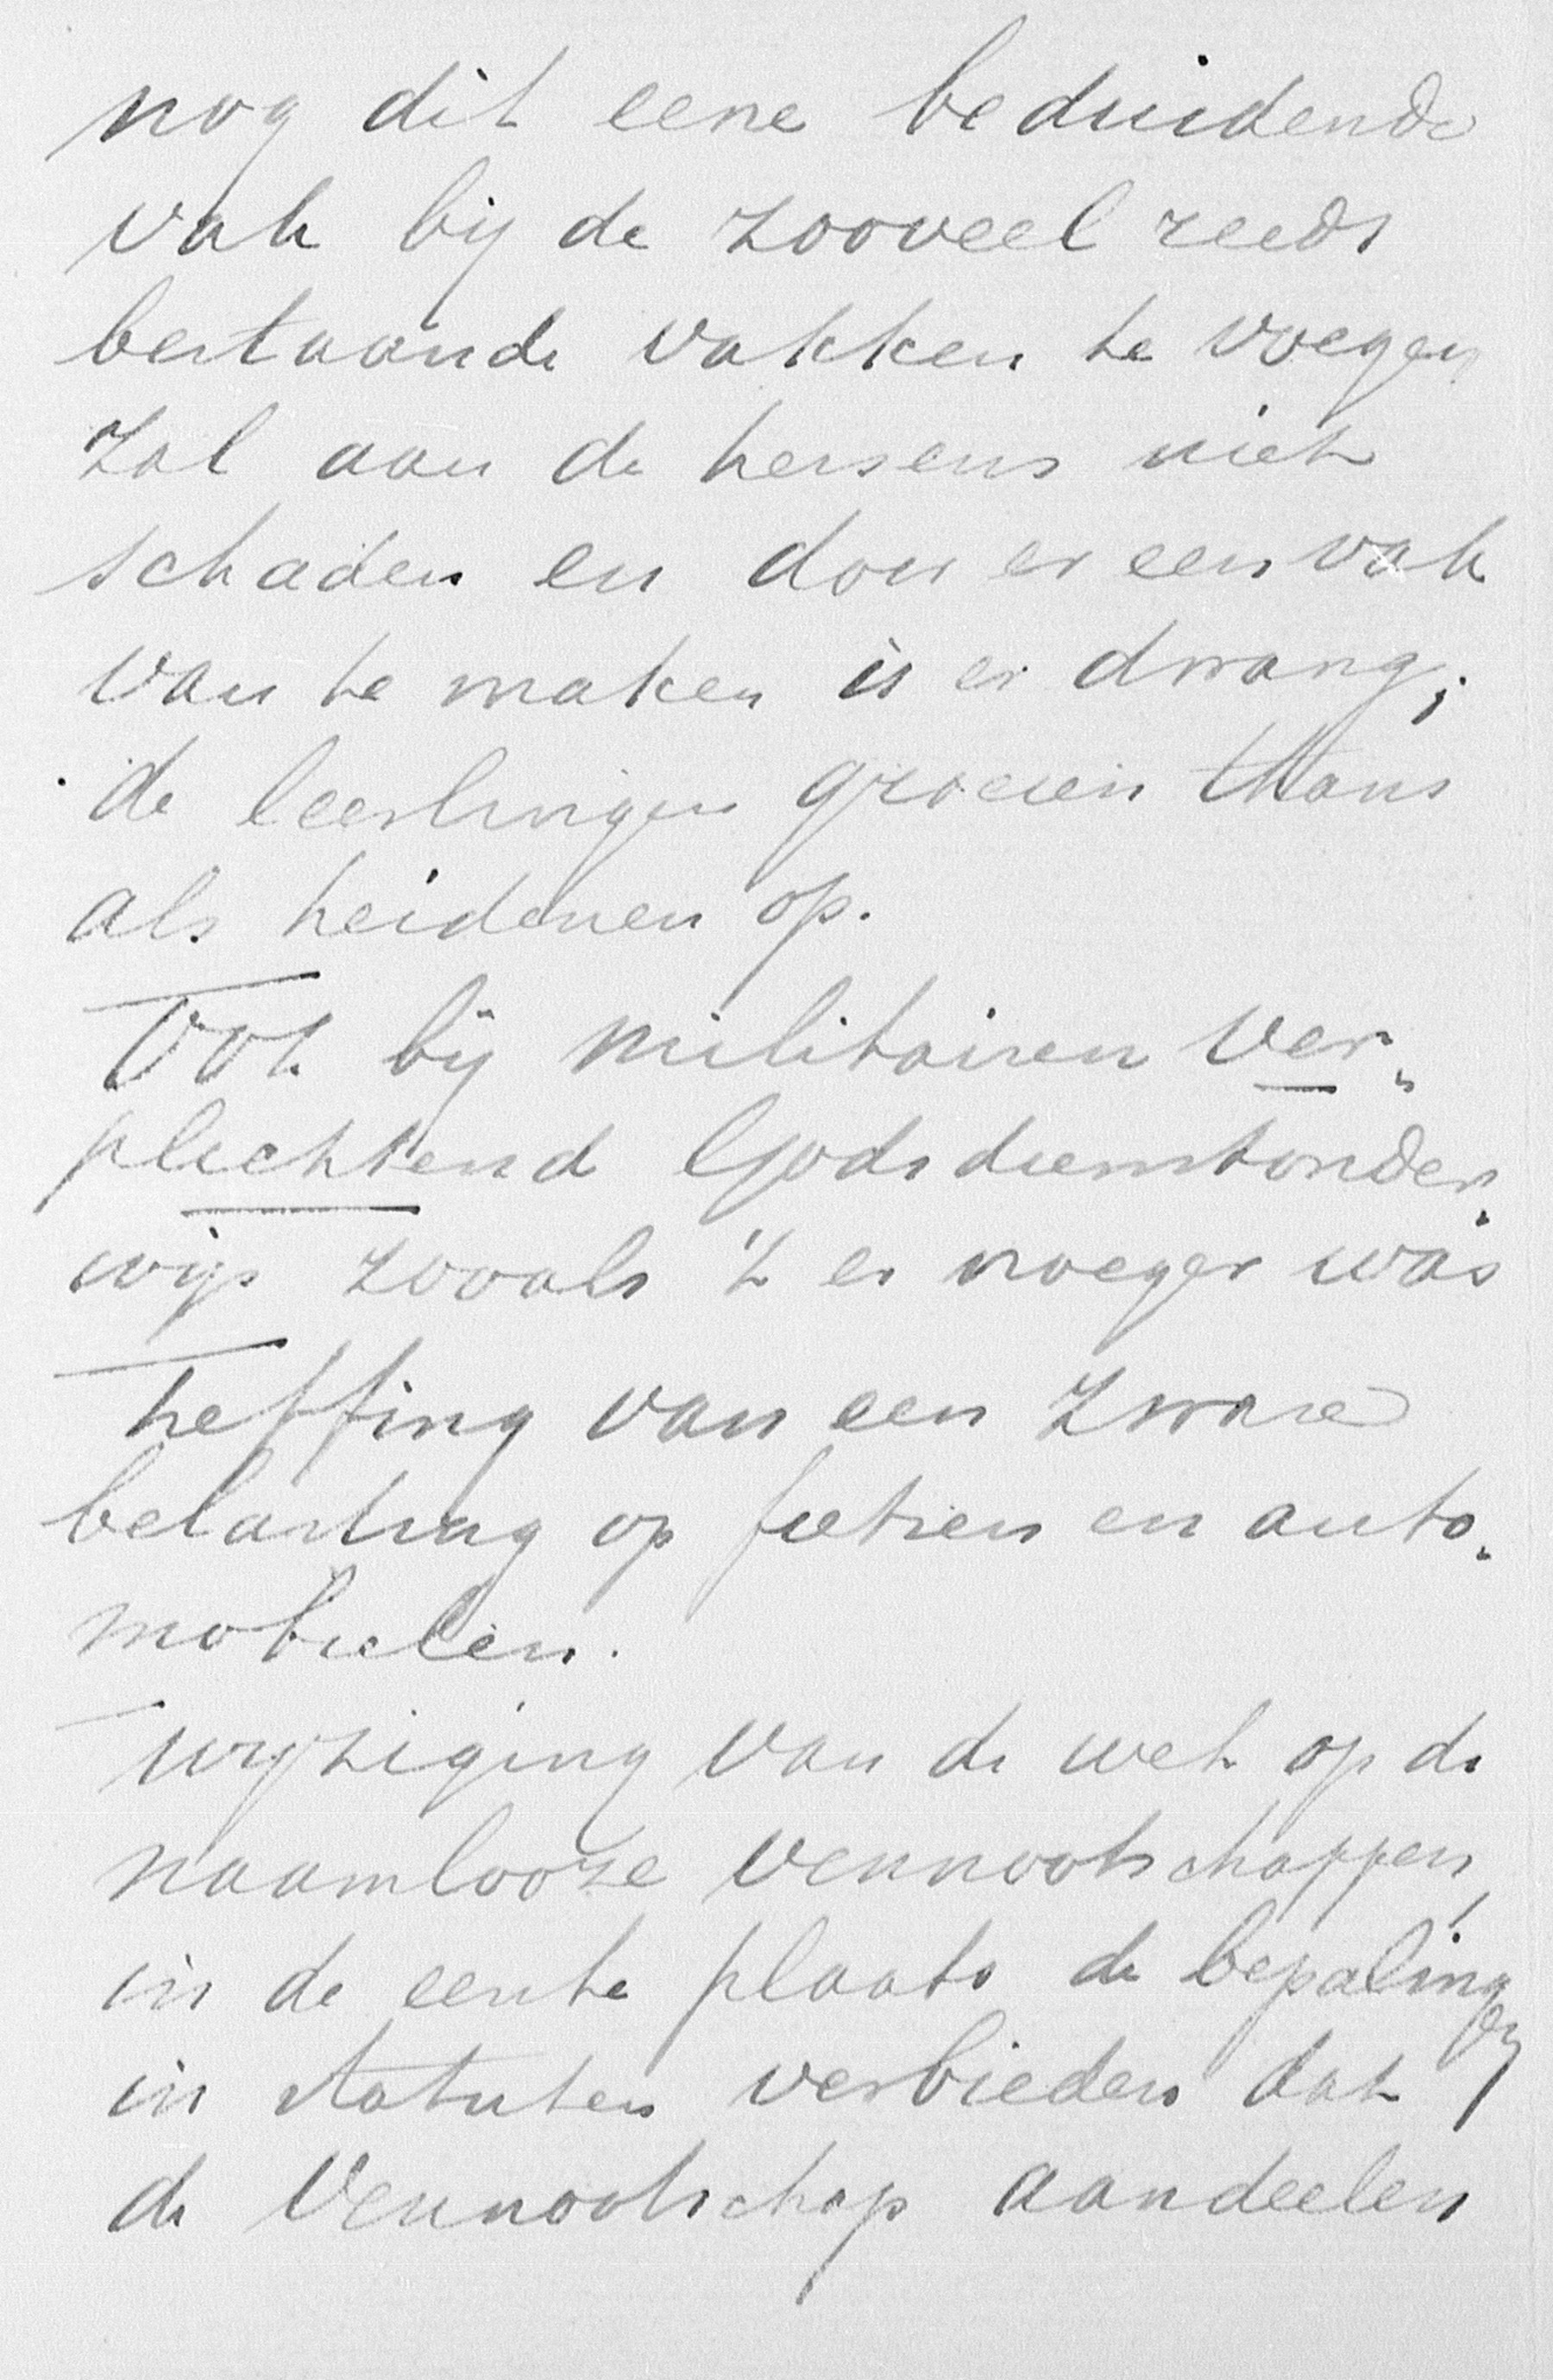 nog dit eene beduidende
vak bij de zooveel reeds
bestaande vakken te voegen
zal aan de hersens niet
schaden en door er een vak
van te maken is er dwang;
de leerlingen groeien thans
als heidenen op.
Ook bij militairen ver„
plichtend Godsdienstonder„
wijs zooals 't er vroeger was
heffing van een zware
belasting op fietsen en auto„
mobielen.
wijziging van de wet op de
naamlooze vennootschappen,
in de eerste plaats de bepalingen
in statuten verbieden dat
de Vennootschap aandeelen